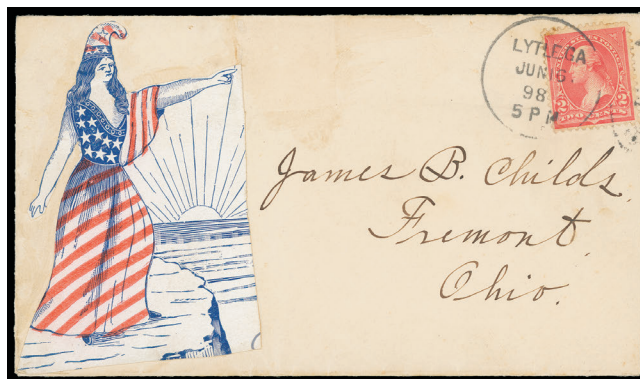 LYTLE GA
JUN 6
98
5 PM
2 2
James B. Childs,
Fremont,
Ohio.